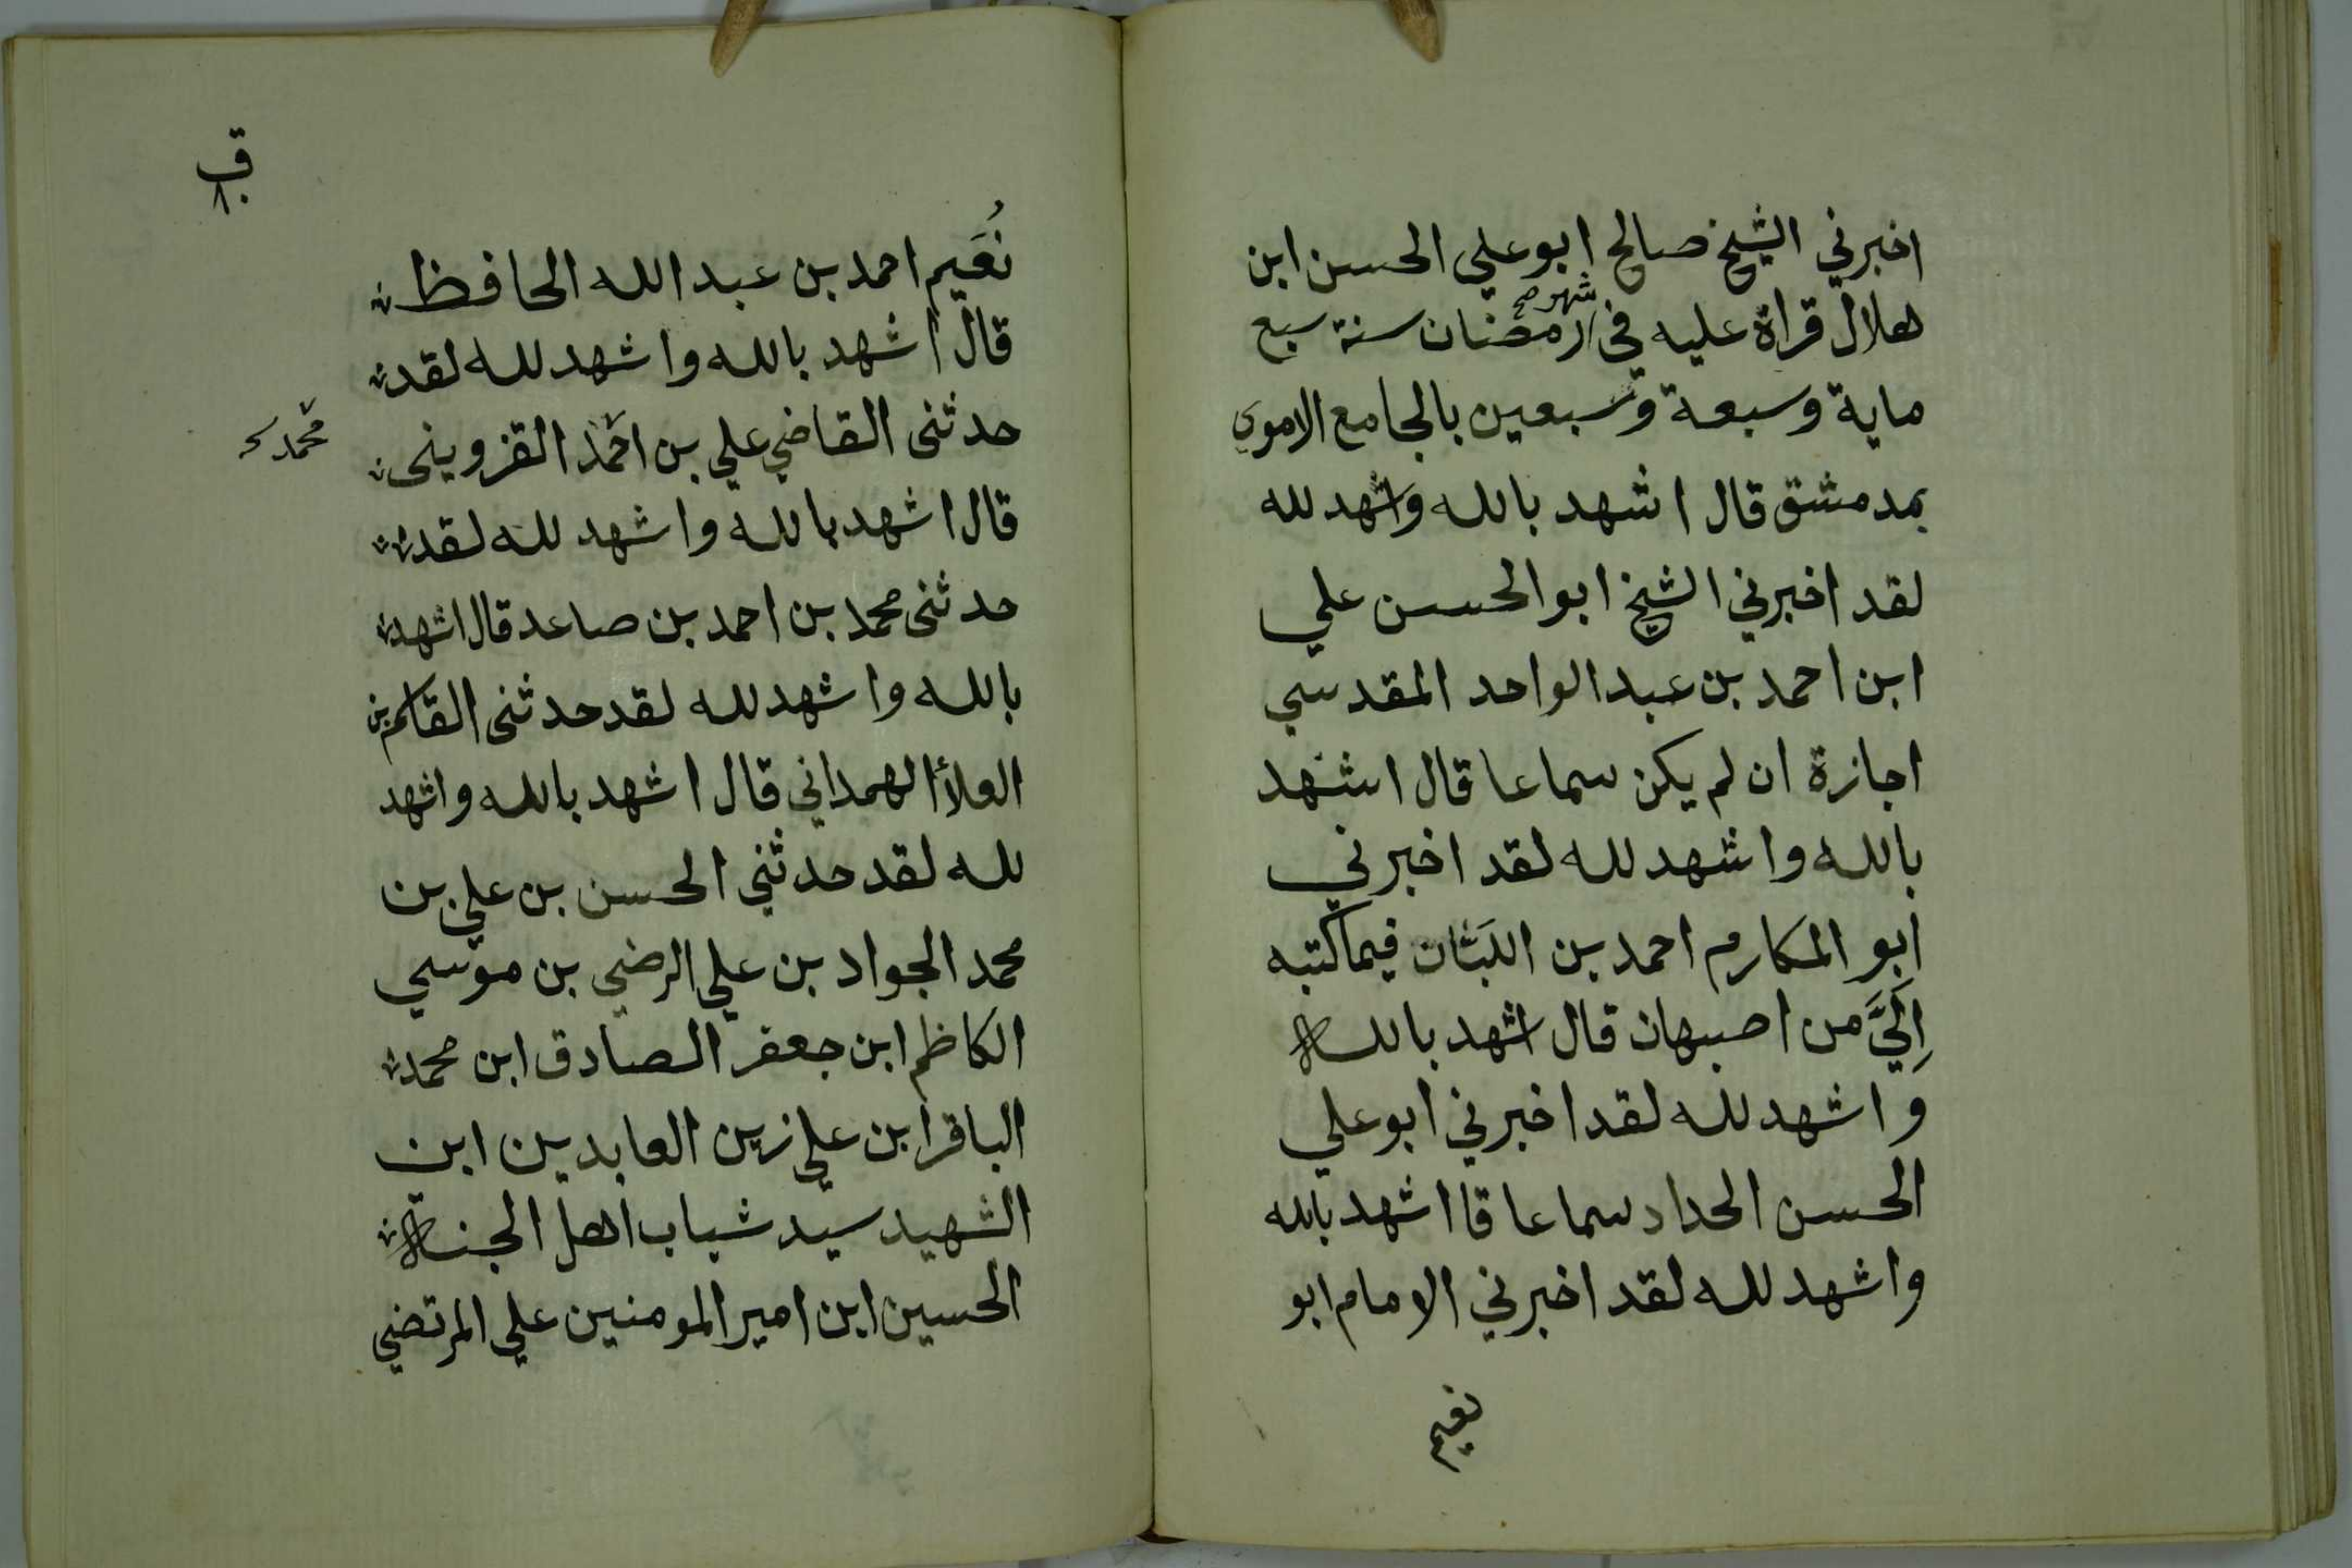 اخبرني الشيخ صالح ابو علي الحسن ابن
هلال قراة عليه في شهر صح رمضنان سنة سبع
ماية وسبعة وسبعين بالجامع الاموي
بمدمشق قال اشهد بالله واشهد لله
لقد اخبرني الشيخ ابو الحسن علي
ابن احمد بن عبد الواحد المقدسي
اجازة ان لم يكن سماعا قال اشهد
بالله واشهد لله لقد اخبرني
ابو المكارم احمد بن اللبَّان فيما كتبه
اِلَيَّ من اصبهان قال اشهد بالله
واشهد لله لقد اخبرني ابو علي
الحسن الحداد سماعا قا اشهد بالله
واشهد لله لقد اخبرني الامام ابو
نعيم
نُعَيم احمد بن عبد الله الحافظ
قال اشهد بالله واشهد لله لقد
حدثنى القاضي علي بن احمد القزوينى
محمد
قال اشهد بالله واشهد لله لقد
حدثنى محمد بن احمد بن صاعد قال اشهد
بالله واشهد لله لقد حدثنى القاسم بن
العلأ الهمداني قال اشهد بالله واشهد
لله لقد حدثني الحسن بن علي بن
محمد الجواد بن علي الرضي بن موسي
الكاظم ابن جعفر الصادق ابن محمد
الباقر ابن علي زين العابدين ابن
الشهيد سيد شباب اهل الجنة
الحسين ابن امير المومنين علي المرتضي